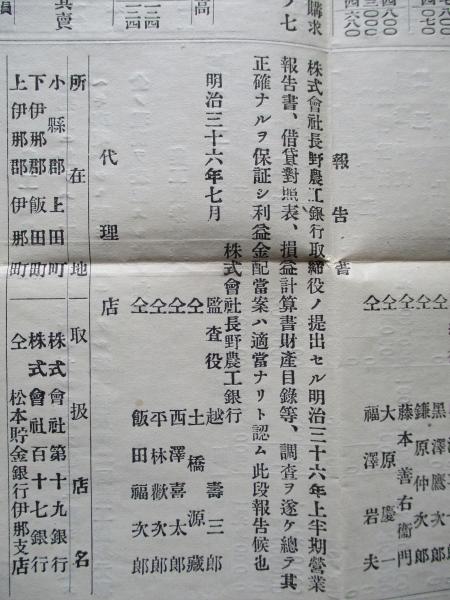 仝 黑澤鷹次郎
仝 鎌原仲次郎
仝 藤本善右衞門
仝 大原慶一
仝 福澤岩夫
購求
ノ七
高
其賣
報告書
株式會社長野農工銀行取締役ノ提出セル明治三十六年上半期營業
報告書、借貸對照表、損益計算書財產目錄等、調查ヲ遂ケ總テ其
正確ナルヲ保証シ利益金配當案ハ適當ナリト認ム此段報告候也
明治三十六年七月
株式會社長野農工銀行
監査役 越壽三郎
仝 土橋源藏
仝 西澤喜太郎
仝 平林歡次郎
仝 飯田福次郎
代理店
所在地 取扱店名
小縣郡上田町 株式會社第十九銀行
下伊那郡飯田町 株式會社百十七銀行
上伊那郡伊那町 仝 松本貯金銀行伊那支店